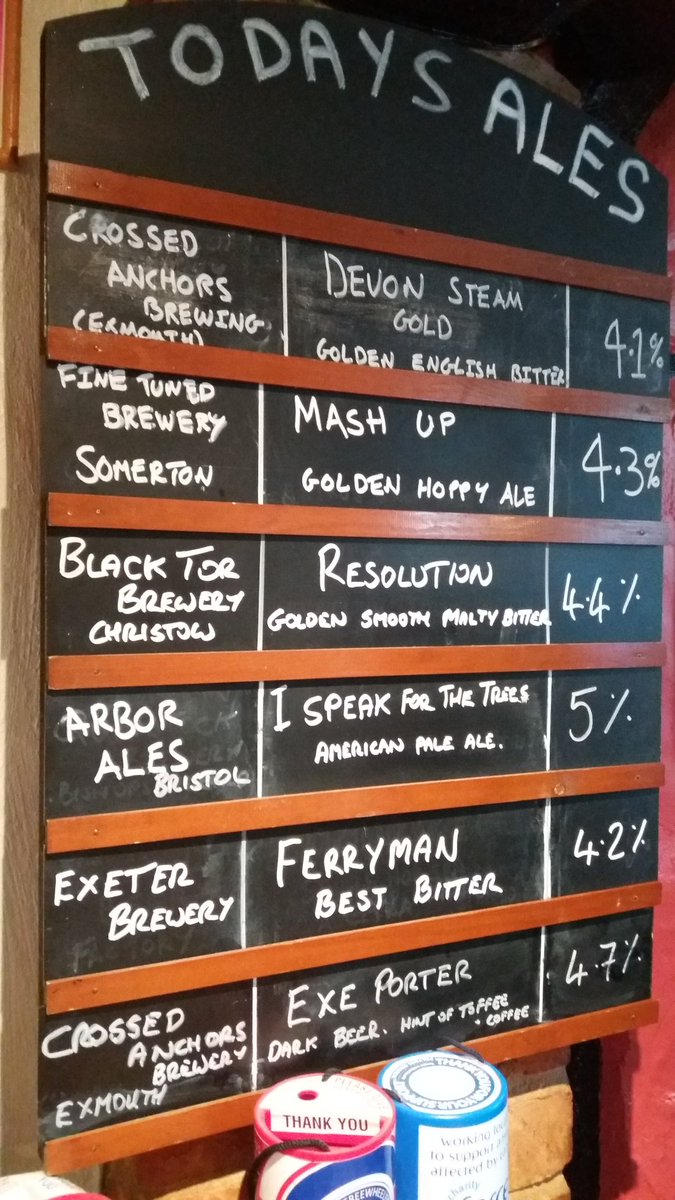 TODAYS ALES
CROSSED
ANCHORS
BREWING
(EXMOUTH)
DEVON STEAM
GOLD
GOLDEN ENGLISH BITTER
4.1%
FINE TUNED
BREWERY
SOMERTON
MASH UP
GOLDEN HOPPY ALE
4.3%
BLACK TOR
BREWERY
CHRISTOW
RESOLUTION
GOLDEN SMOOTH MALTY BITTER
4.4%
ARBOR
ALES
BRISTOL
I SPEAK FOR THE TREES
AMERICAN PALE ALE.
5%
EXETER
BREWERY
FERRYMAN
BEST BITTER
4.2%
CROSSED
ANCHORS
BREWERY
EXMOUTH
EXE PORTER
DARK BEER. HINT OF TOFFEE
+ COFFEE
4.7%
THANK YOU
FREEWHEEL
THANK YOU FOR YOUR SUPPORT
working
to support
affected by
charity